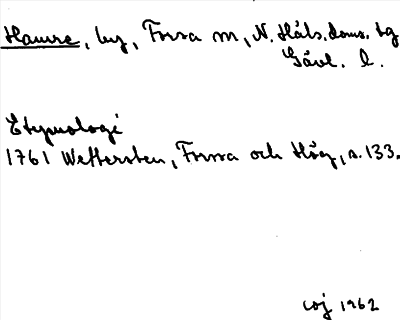 Hamre, by, Forsa sn, N. Häls. doms. tg
Gävl. l.
Etymologi
1761 Wettersten, Forssa och Hög, s. 133.
coj 1962